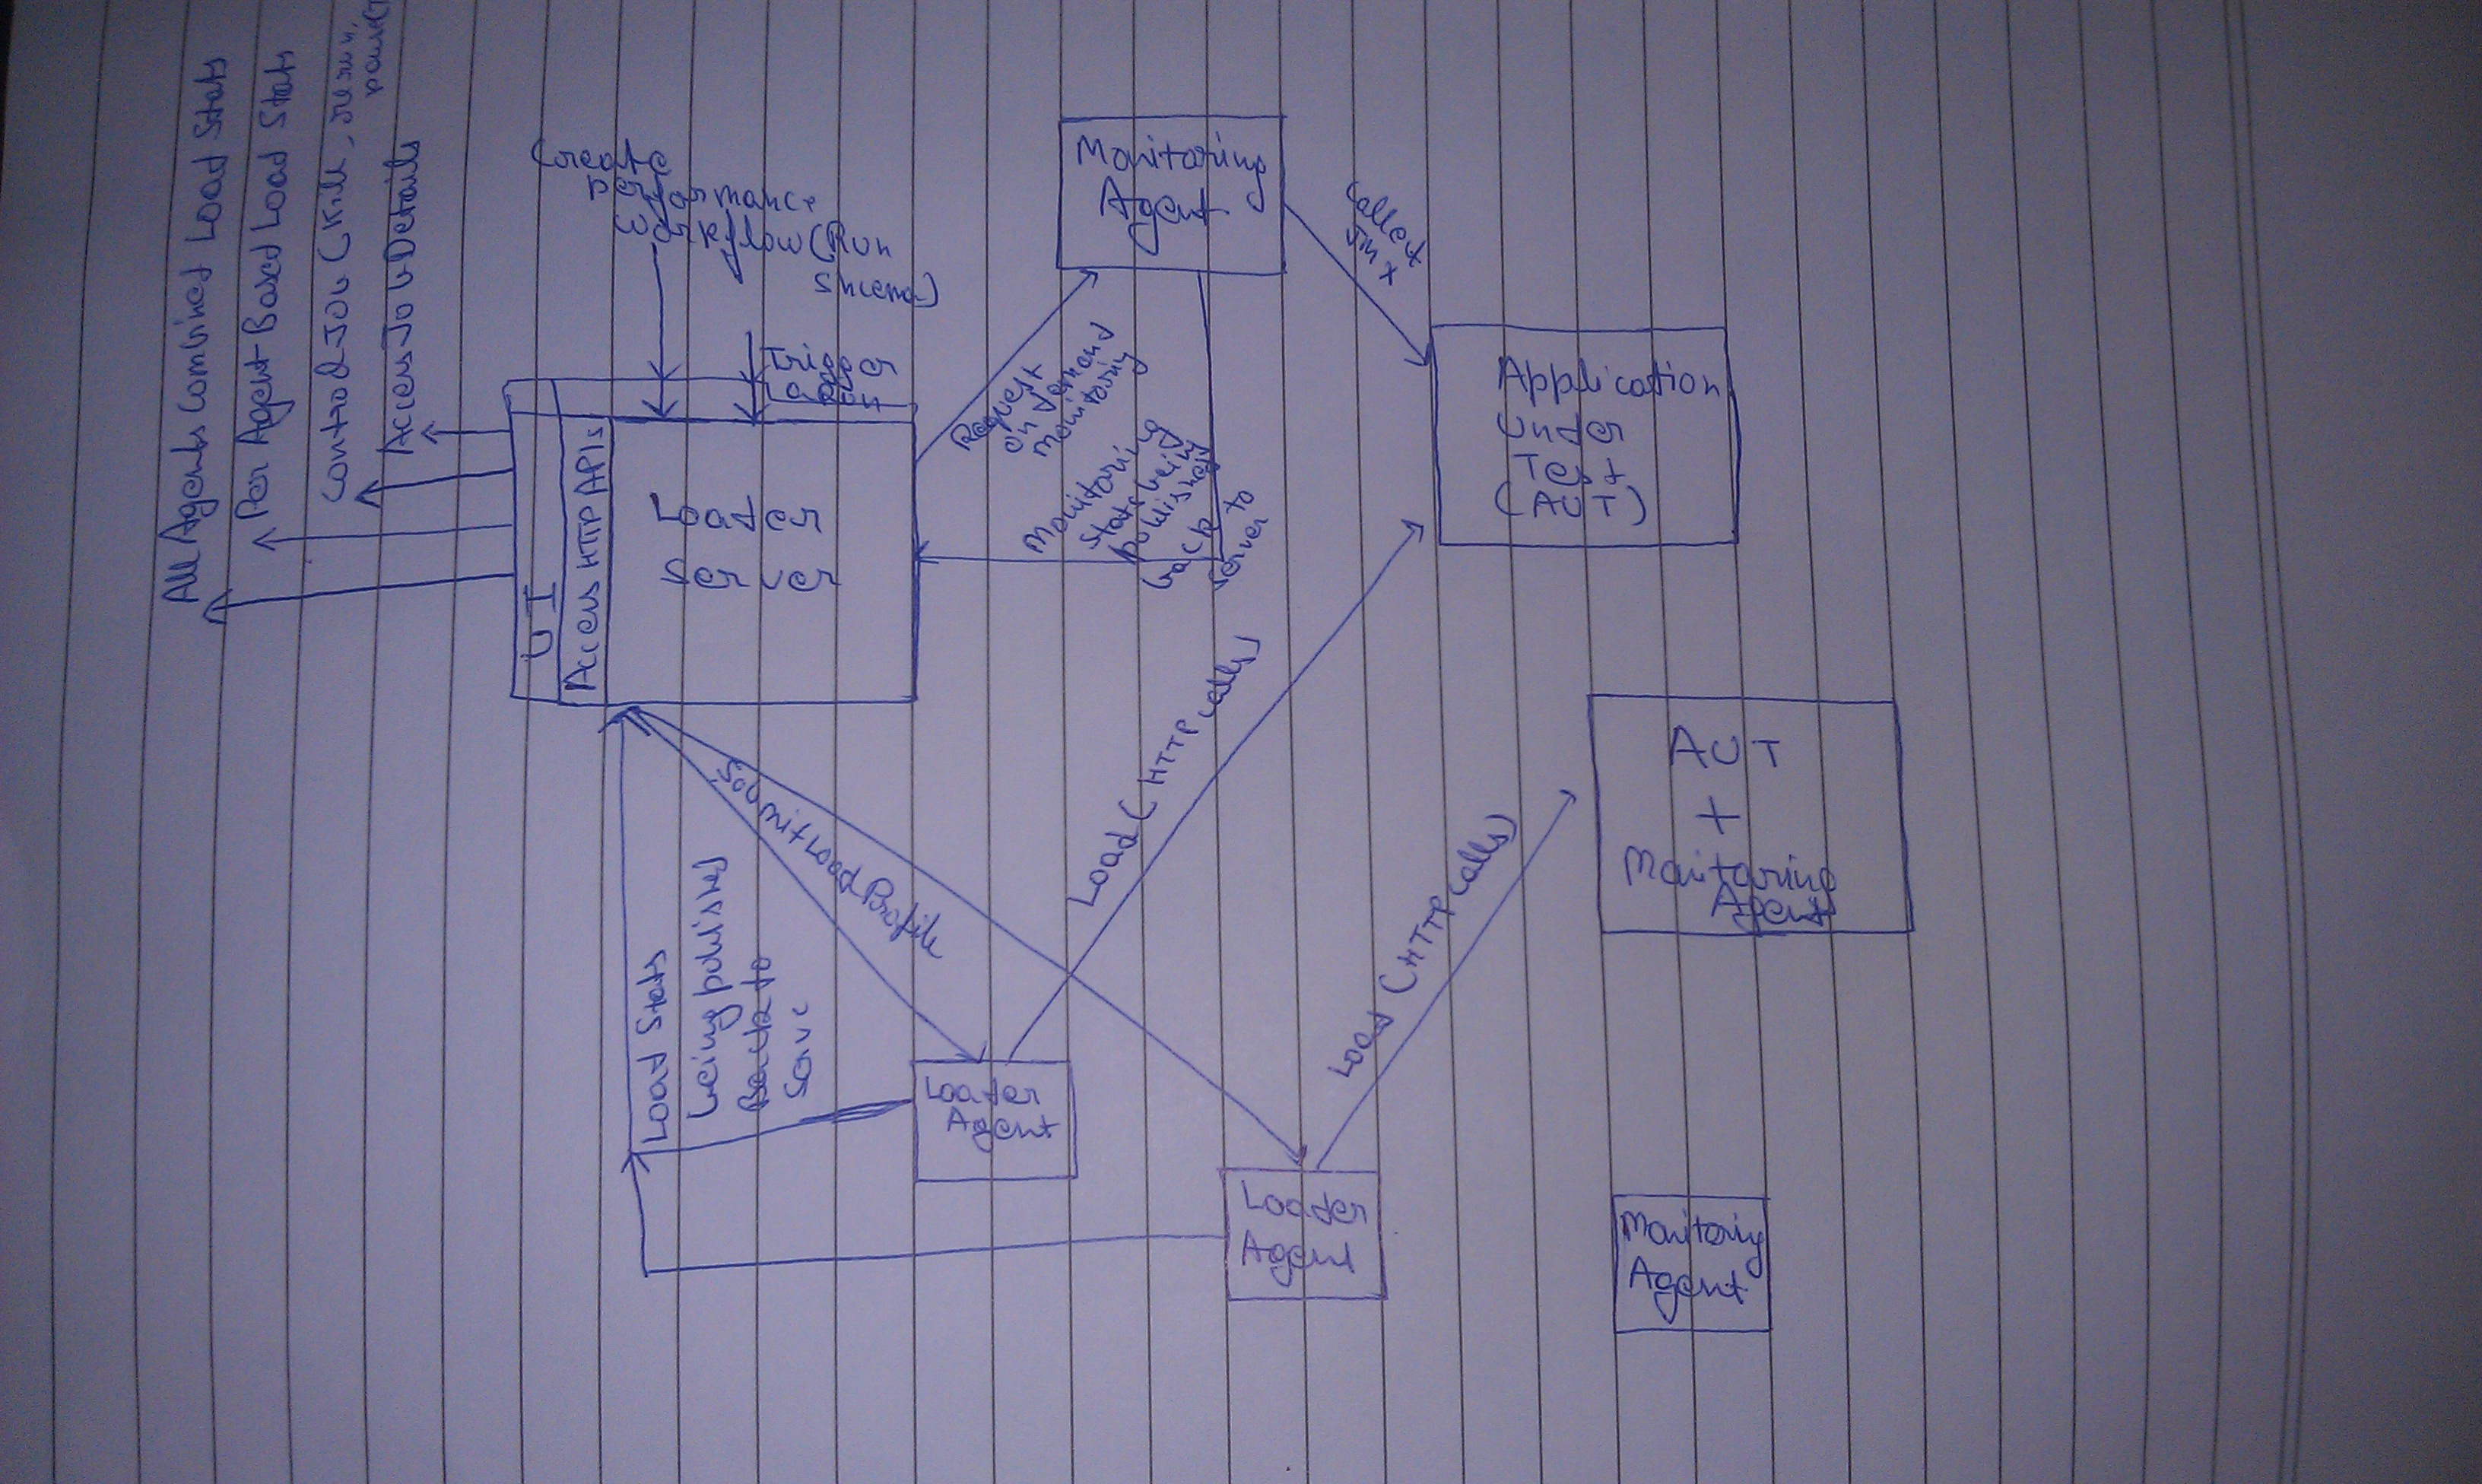 All Agents Combined Load Stats
Per Agent Based Load Stats
Control Job (Kill, rerun,
Access Job Details
Create
performance
Workflow (Run
Trigger
UI
Access HTTP APIs
Loader
Server
Monitoring
Agent
Collect
Jmx
Request
on demand
monitoring
Monitoring
Stats being
published
back to
server
Application
Under
Test
(AUT)
Submit Load Profile
Load (HTTP calls)
Load (HTTP calls)
AUT
+
Monitoring
Agent
Load Stats
being published
Back to
Serve
Loader
Agent
Loader
Agent
Monitorig
Agent